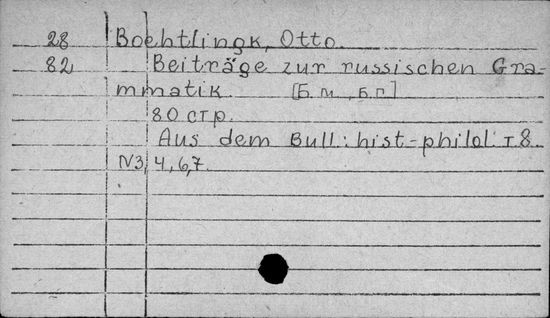 28 Boehtlingk, Otto.
82 Beiträge zur russischen Gra-
mmatik. [Б. м., Б. г]
80 стр.
Aus dem Bull: hist-philol т 8.
N3, 4, 6, 7.